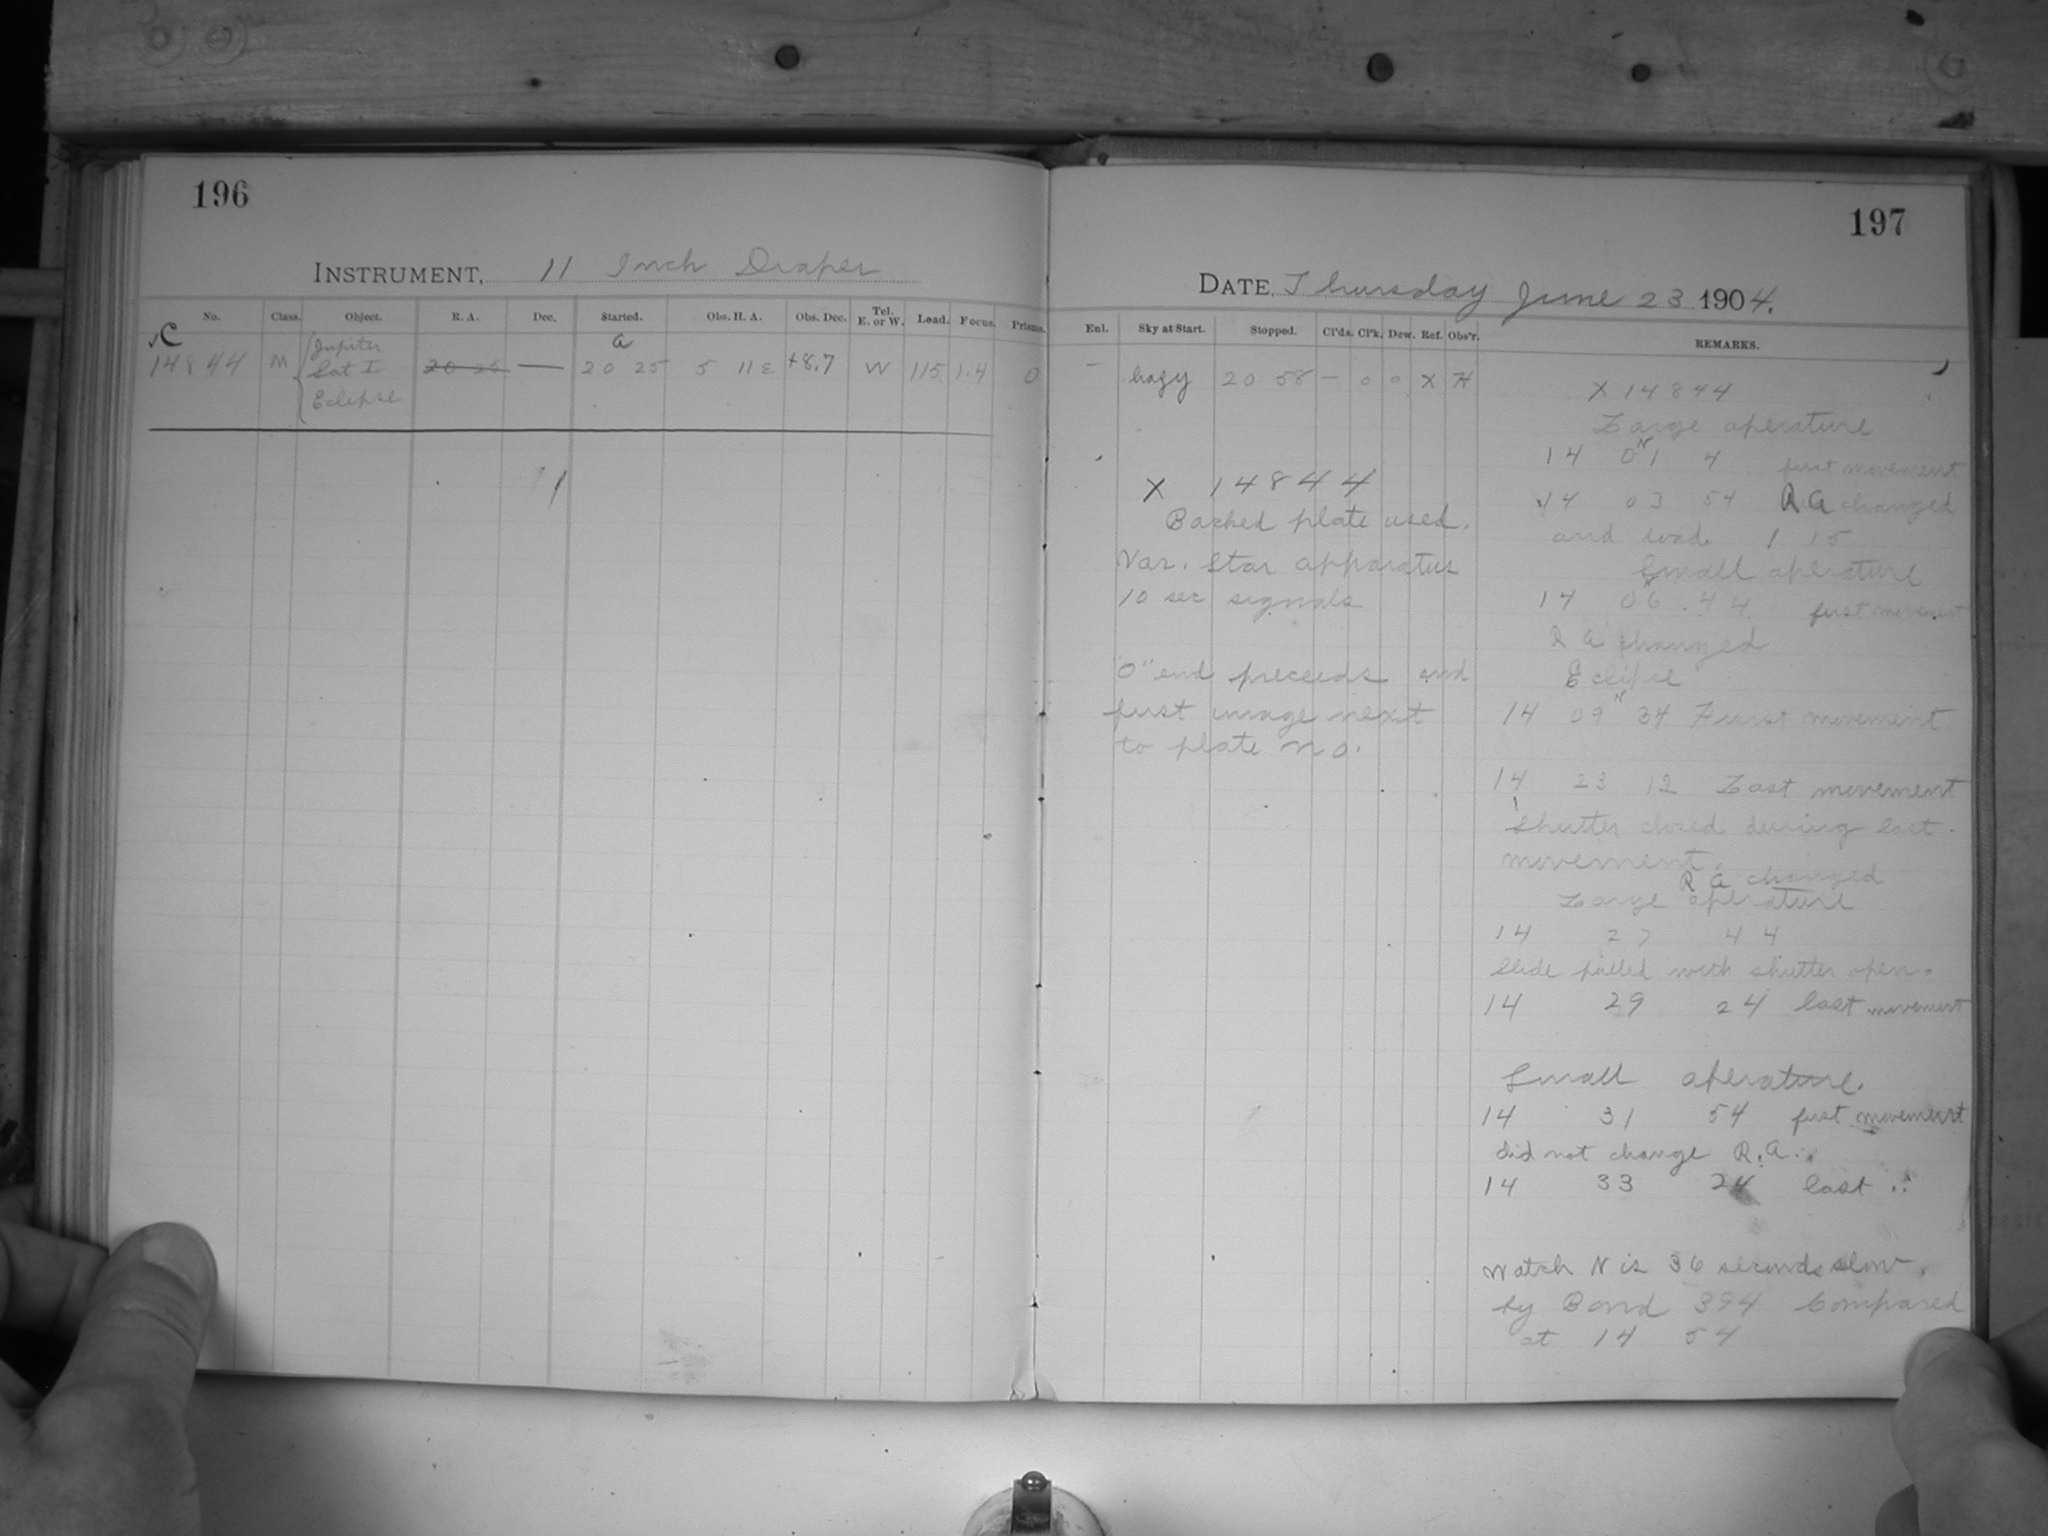 196
INSTRUMENT, 11 Inch Draper
No. Class. Object. R. A. Dec. Started. Obs. H. A. Obs. Dec. Tel. E. or W. Load. Focus. Prisms.
C
14844 M Jupiter Sat I Eclipse 20 25 — a 20 25 5 11 E +8.7 W 115 1.4 0
197
DATE, Thursday June 23 1904.
Enl. Sky at Start. Stopped. Cl'ds. Cl'k. Dew. Ref. Obs'r. REMARKS.
— hazy 20 58 — 0 0 X H
X 14844
Backed plate used.
Var. Star apparatus
10 sec signals
"O" end preceeds and
first image next
to plate no.
X 14844
Large aperature
14 01 N 4 first movement
14 03 54 R A changed
and load 1 15
Small aperature
14 06 44 first movement
R A changed
Eclipse
14 09 N 34 First movement
14 23 12 Last movement
Shutter closed during last
movement.
R A changed
Large aperature
14 27 44
Slide pulled with shutter open.
14 29 24 last movement
Small aperature.
14 31 54 first movement
did not change R.A.
14 33 24 last "
Watch N is 36 seconds slow.
by Bond 394 Compared
at 14 54